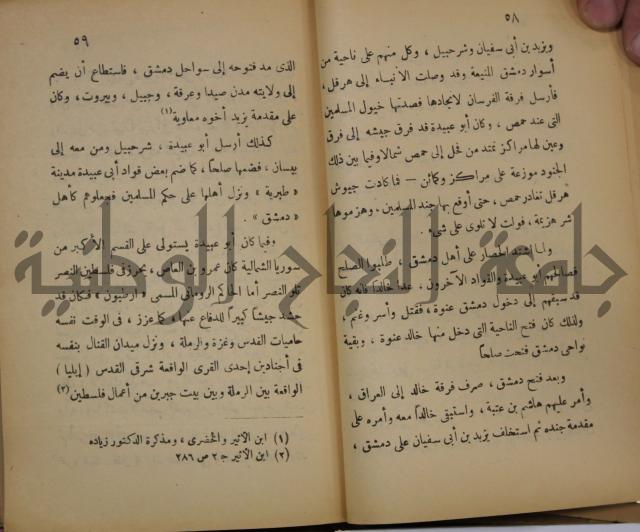 ٥٨
ويزيد بن أبي سفيان وشرحبيل ، وكل منهم على ناحية من
أسوار دمشق المنيعة وقد وصلت الأنباء إلى هرقل ،
فأرسل فرقة الفرسان لإنجادها فصدتها خيول المسلمين
التي عند حمص ، وكان أبو عبيدة قد فرق جيشه إلى فرق
وعين لها مراكز تمتد من فحل إلى حمص شمالا وفيما بين ذلك
الجنود موزعة على مراكز وكمائن — فما كادت جيوش
هرقل تغادر حمص ، حتى أوقع بها جند المسلمين . وهزموها
شر هزيمة ، فولت لا تلوى على شيء .
ولما اشتد الحصار على أهل دمشق ، طلبوا الصلح
فصالحهم أبو عبيدة والقواد الآخرون ، عدا خالدا فإنه كان
قد سبقهم إلى دخول دمشق عنوة ، فقتل وأسر وغنم ،
ولذلك كان فتح الناحية التي دخل منها خالد عنوة ، وبقية
نواحي دمشق فتحت صلحا
وبعد فتح دمشق ، صرف فرقة خالد إلى العراق ،
وأمر عليهم هاشم بن عتبة ، واستبقى خالدا معه وأمره على
مقدمة جنده ثم استخلف يزيد بن أبي سفيان على دمشق ،
٥٩
الذى مد فتوحه إلى سواحل دمشق ، فاستطاع أن يضم
إلى ولايته مدن صيدا وعرقة ، وجبيل ، وبيروت ، وكان
على مقدمة يزيد أخوه معاوية (١)
كذلك أرسل أبو عبيدة ، شرحبيل ومن معه إلى
بيسان ، فضمها صلحا ، كما ضم بعض قواد أبي عبيدة مدينة
« طبرية » ونزل أهلها على حكم المسلمين فعاملوهم كأهل
« دمشق » .
وفيما كان أبو عبيدة يستولى على القسم الأكبر من
سوريا الشمالية كان عمرو بن العاص ، يحرز في فلسطين النصر
تلو النصر أما الحاكم الروماني المسمى « ارطبون » فكان قد
حشد جيشا كبيرا للدفاع عنها ، كما عزز ، في الوقت نفسه
حاميات القدس وغزة والرملة ، ونزل ميدان القتال بنفسه
في أجنادين إحدى القرى الواقعة شرقى القدس ( إيليا )
الواقعة بين الرملة وبين بيت جبرين من أعمال فلسطين (٢)
(١) ابن الأثير والخضرى ، ومذكرة الدكتور زياده
(٢) ابن الأثير ج ٢ ص ٢٨٦
جامعة النجاح الوطنية